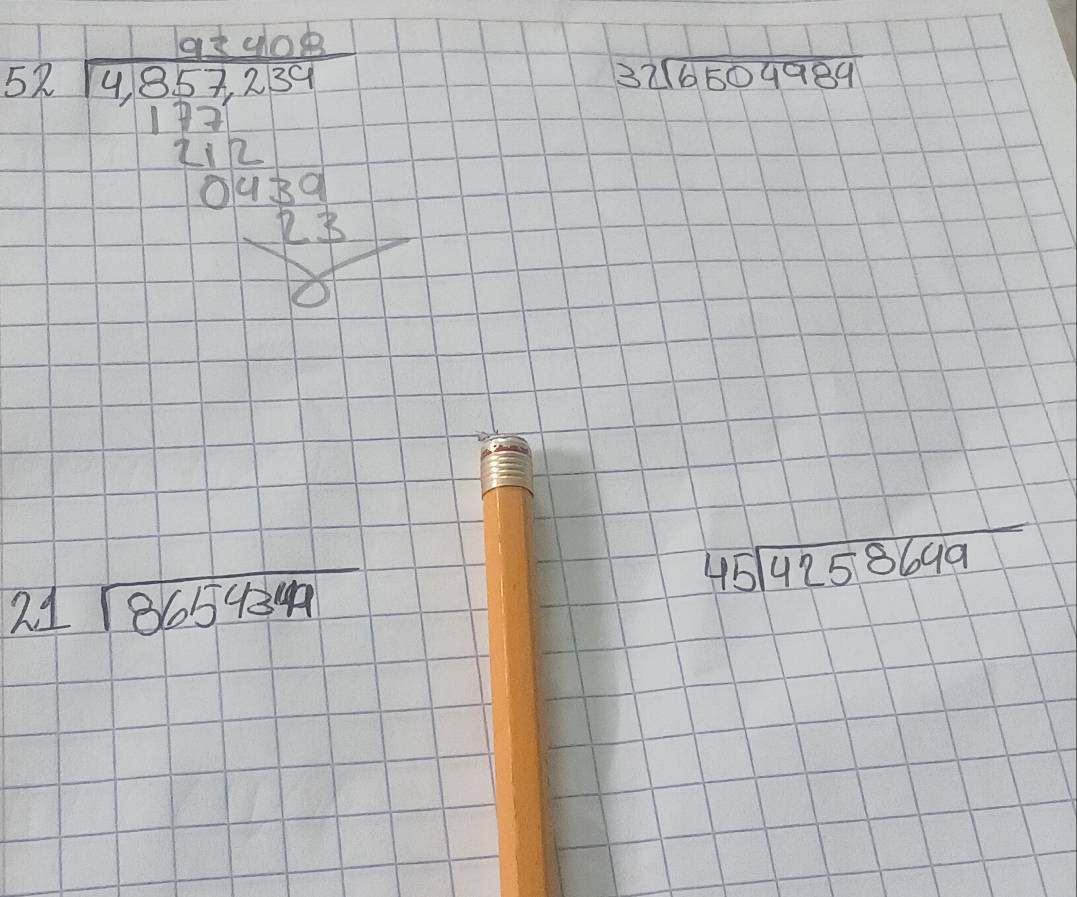 93408
52 4,857,239
177
212
0439
23
32 6504984
21 8654349
45 4258649